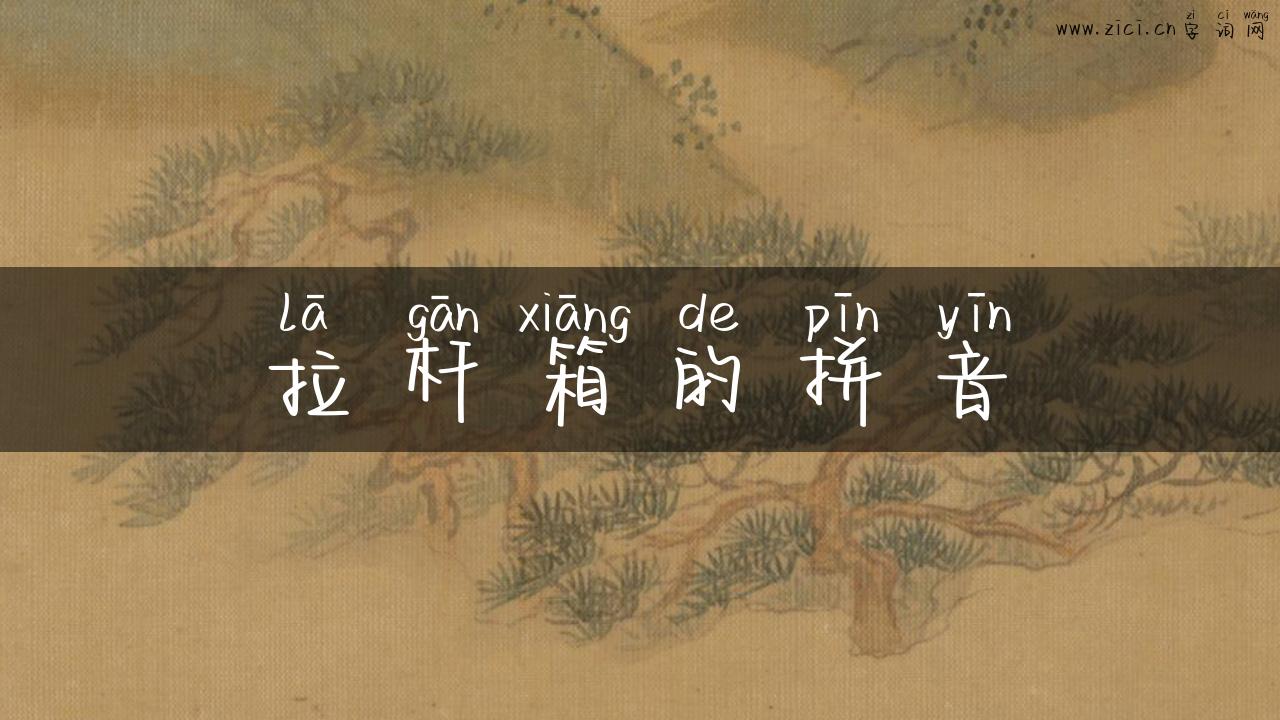 zì cí wǎng
www.zīcī.cn 字 词 网
lā gān xiāng de pīn yīn
拉 杆 箱 的 拼 音